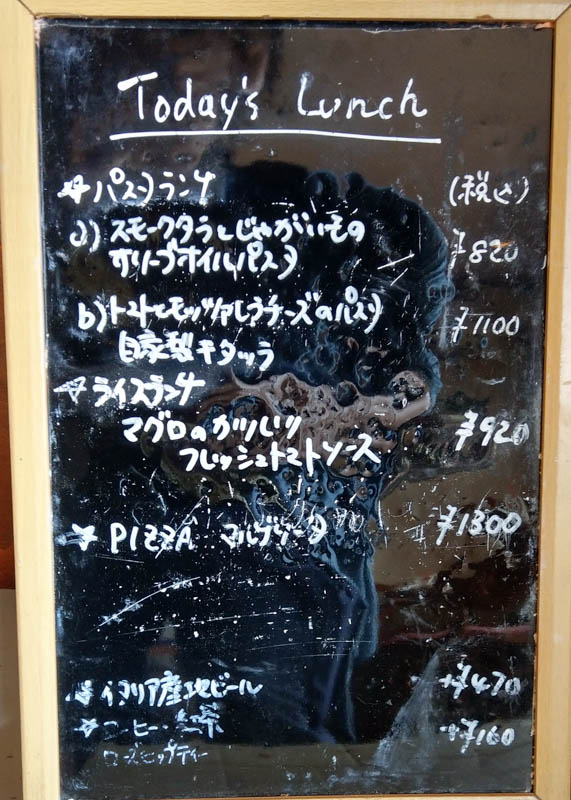 Today's Lunch
☆パスタランチ (税込)
a) スモークタラとじゃがいもの
オリーブオイルパスタ ¥820
b) トマトとモッツァレラチーズのパスタ ¥1100
自家製キタッラ
☆ライスランチ
マグロのカツレツ
フレッシュトマトソース ¥920
☆PIZZA マルゲリータ ¥1300
☆イタリア産地ビール +¥470
☆コーヒー・紅茶 +¥160
ローズヒップティー